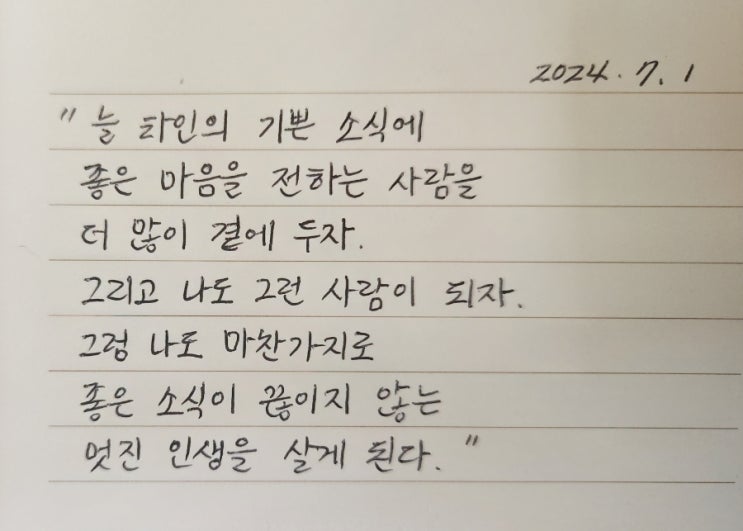 2024. 7. 1
" 늘 타인의 기쁜 소식에
좋은 마음을 전하는 사람을
더 많이 곁에 두자.
그리고 나도 그런 사람이 되자.
그럼 나도 마찬가지로
좋은 소식이 끊이지 않는
멋진 인생을 살게 된다. "